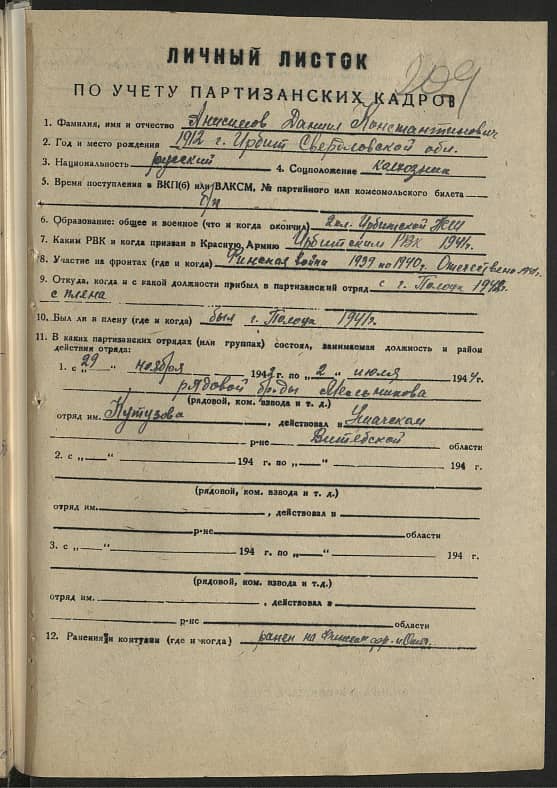 209
ЛИЧНЫЙ ЛИСТОК
ПО УЧЕТУ ПАРТИЗАНСКИХ КАДРОВ
1. Фамилия, имя и отчество Анисимов Даниил Константинович
2. Год и место рождения 1912 г. Ирбит Свердловской обл.
3. Национальность русский 4. Соцположение колхозник
5. Время поступления в ВКП(б) или ВЛКСМ, № партийного или комсомольского билета
б/п
6. Образование: общее и военное (что и когда окончил) 2 кл. Ирбитской НСШ
7. Каким РВК и когда призван в Красную Армию Ирбитским РВК 1941г.
8. Участие на фронтах (где и когда) Финская война 1939 по 1940г. Отечествено 1941г.
9. Откуда, когда и с какой должности прибыл в партизанский отряд с г. Полоцк 1942г.
с плена
10. Был ли в плену (где и когда) был г. Полоцк 1941г.
11. В каких партизанских отрядах (или группах) состоял, занимаемая должность и район
действия отряда:
1. с „29“ ноября 1942г. по „2„ июля 1944г.
рядовой бр-ды Мельникова
(рядовой, ком. взвода и т. д.)
отряд им. Кутузова, действовал в Ушачском
р-не Витебской области
2. с „—“ 194 г. по „—“ 194 г.
(рядовой, ком. взвода и т. д.)
отряд им. , действовал в
р-не области
3. с „—“ 194 г. по „—“ 194 г.
(рядовой, ком. взвода и т.д.)
отряд им. , действовал в
р-не области
12. Ранения и контузии (где и когда) ранен на Финском фр.